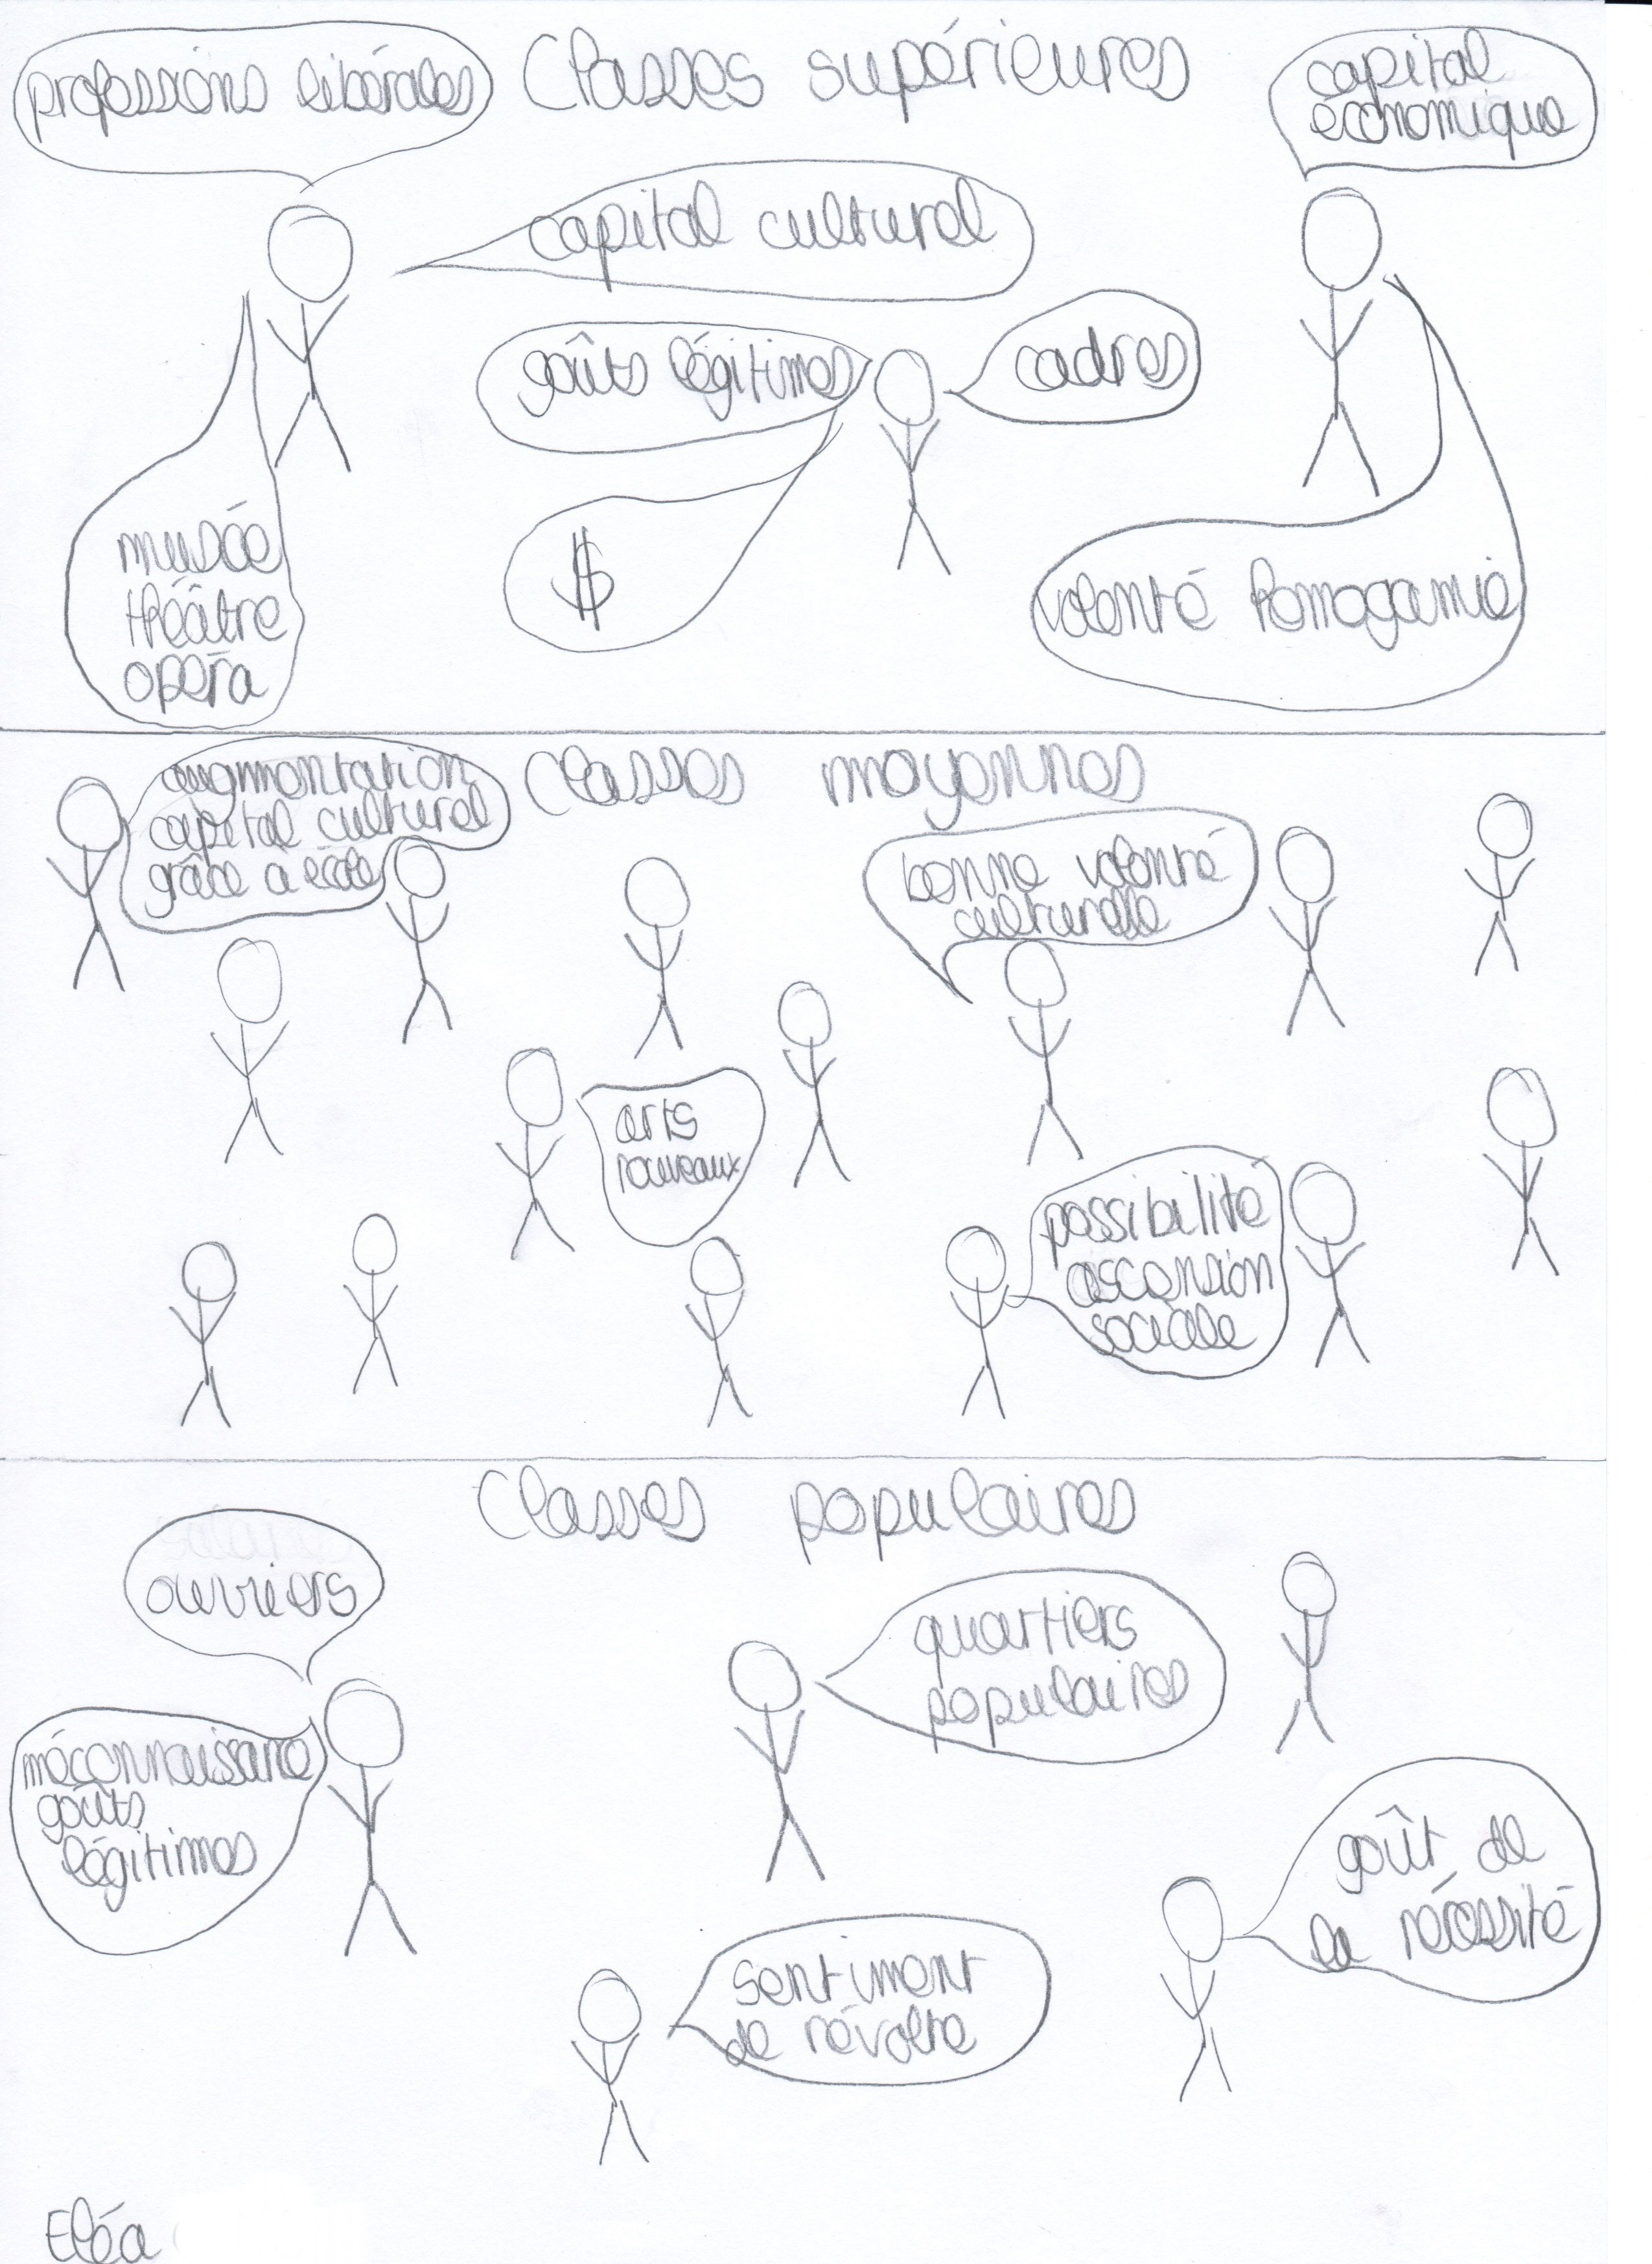 professions libérales
Classes supérieures
capital
économique
capital cultural
goûts légitimes
cadres
$
musée
théâtre
opéra
volonté homogamie
augmentation
capital culturel
grâce à école
Classes moyennes
bonne volonté
culturelle
arts
nouveaux
possibilité
ascension
sociale
Classes populaires
ouvriers
quartiers
populaires
méconnaissance
goûts
légitimes
goût de
la nécessité
sentiment
de révolte
Eléa